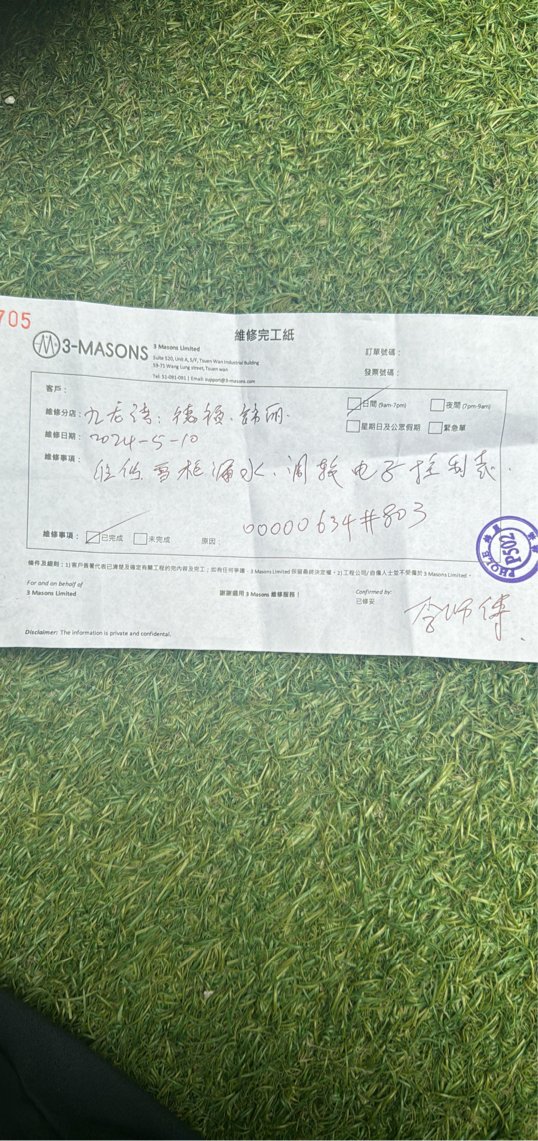 705
3-MASONS
維修完工紙
3 Masons Limited
Suite 520, Unit A, 5/F, Tsuen Wan Industrial Building
59-71 Wang Lung street, Tsuen wan
Tel: 51-091-091 | Email: support@3-masons.com
訂單號碼：
發票號碼：
客戶：
日間 (9am-7pm)
夜間 (7pm-9am)
維修分店：九龙湾
星期日及公眾假期
緊急單
維修日期：2024-5-10
維修事項：雪柜漏水、调较电子控制表.
維修事項：
已完成
未完成
原因：
00000634#803
205P
條件及細則：1)客戶簽署代表已清楚及確定有關工程的完內容及完工；如有任何爭議，3 Masons Limited 保留最終決定權。2)工程公司/自僱人士並不受僱於 3 Masons Limited。
For and on behalf of
3 Masons Limited
謝謝選用 3 Masons 維修服務！
Confirmed by:
已修妥
李师傅
Disclaimer: The information is private and confidential.